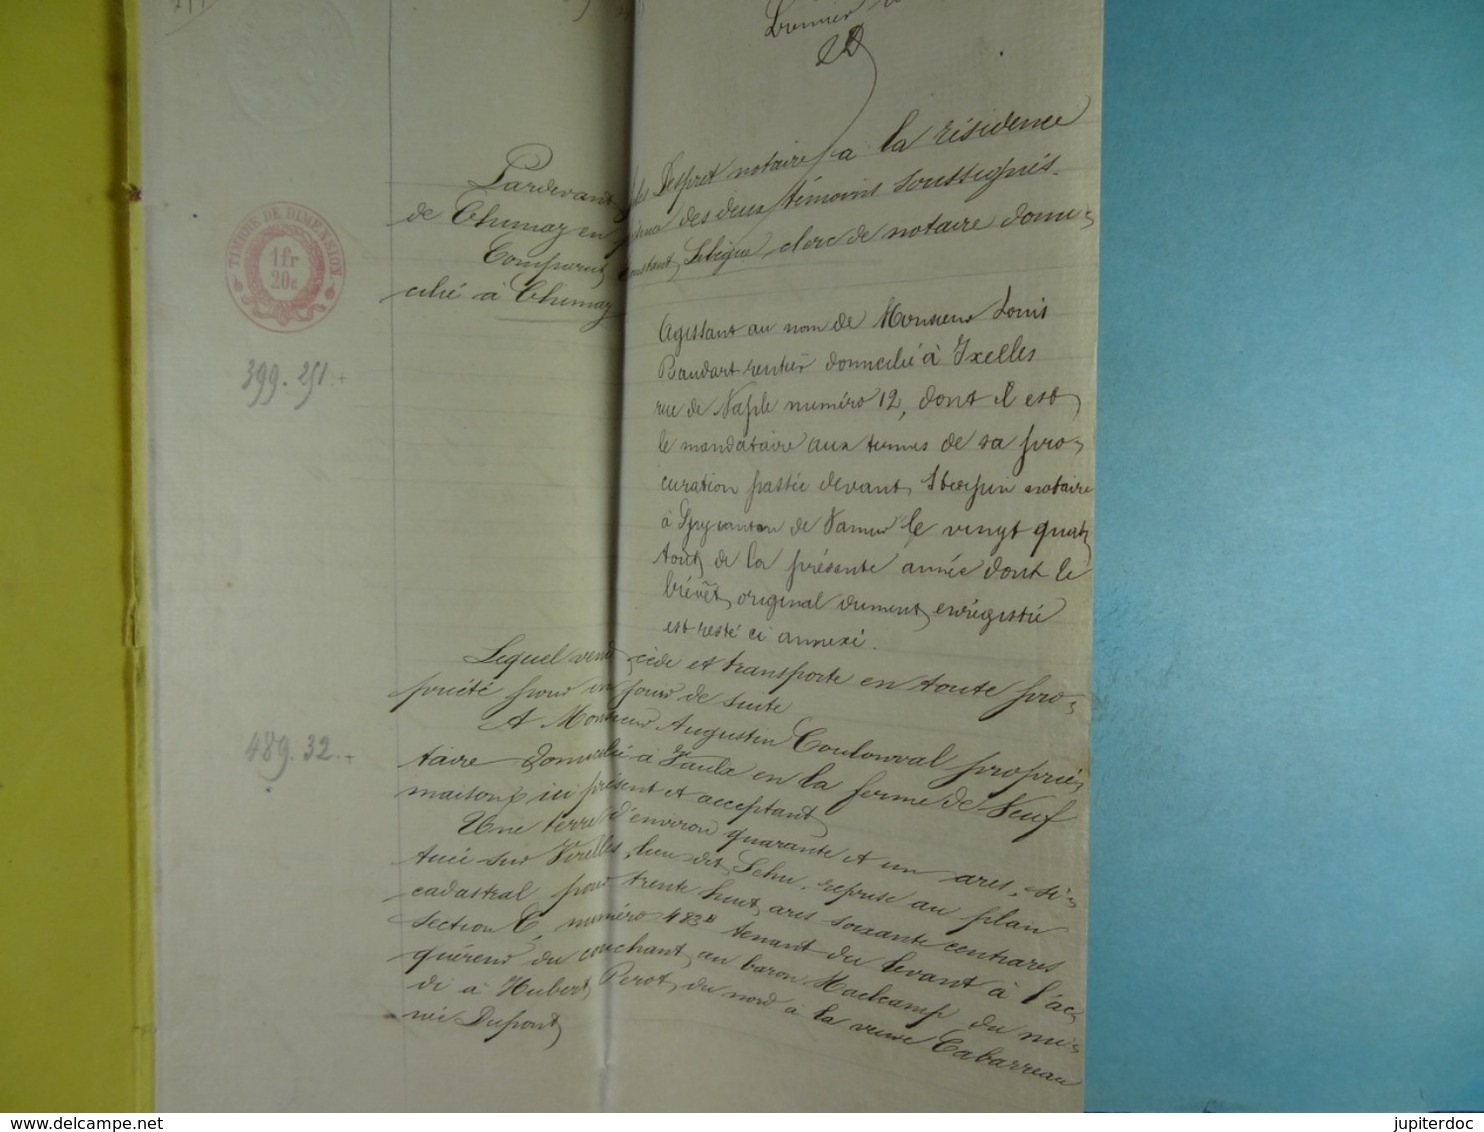 Premier
Pardevant Jules Despret notaire à la résidence
de Chimay en présence des deux témoins soussignés.
Comparut Constant Lebègue, clerc de notaire domi-
cilié à Chimay
TIMBRE DE DIMENSION
1fr
20c
Agissant au nom de Monsieur Louis
Baudart rentier domicilié à Ixelles
399.251.+
rue de Naple numéro 12, dont il est
le mandataire aux termes de sa pro-
curation passée devant notaire
à Spy canton de Namur le vingt quatre
août de la présente année dont le
brévêt original dument enrégistré
est resté ci annexé.
Lequel vend cède et transporte en toute pro-
priété pour en jouir de suite
A Monsieur Augustin Coulonval proprié-
489.32.+
taire domicilié à Vaulx en la ferme de Neuf
maison, ici présent et acceptant
Une terre d'environ quarante et un ares, si-
tuée sur Virelles, lieu dit reprise au plan
cadastral pour trente huit ares soixante centiares
section C, numéro 483B tenant du levant à l'ac-
quéreur du couchant au baron Maelcamp du mi-
di à Hubert Perot, du nord à la veuve Cabarreau
née Dupont
jupiterdoc